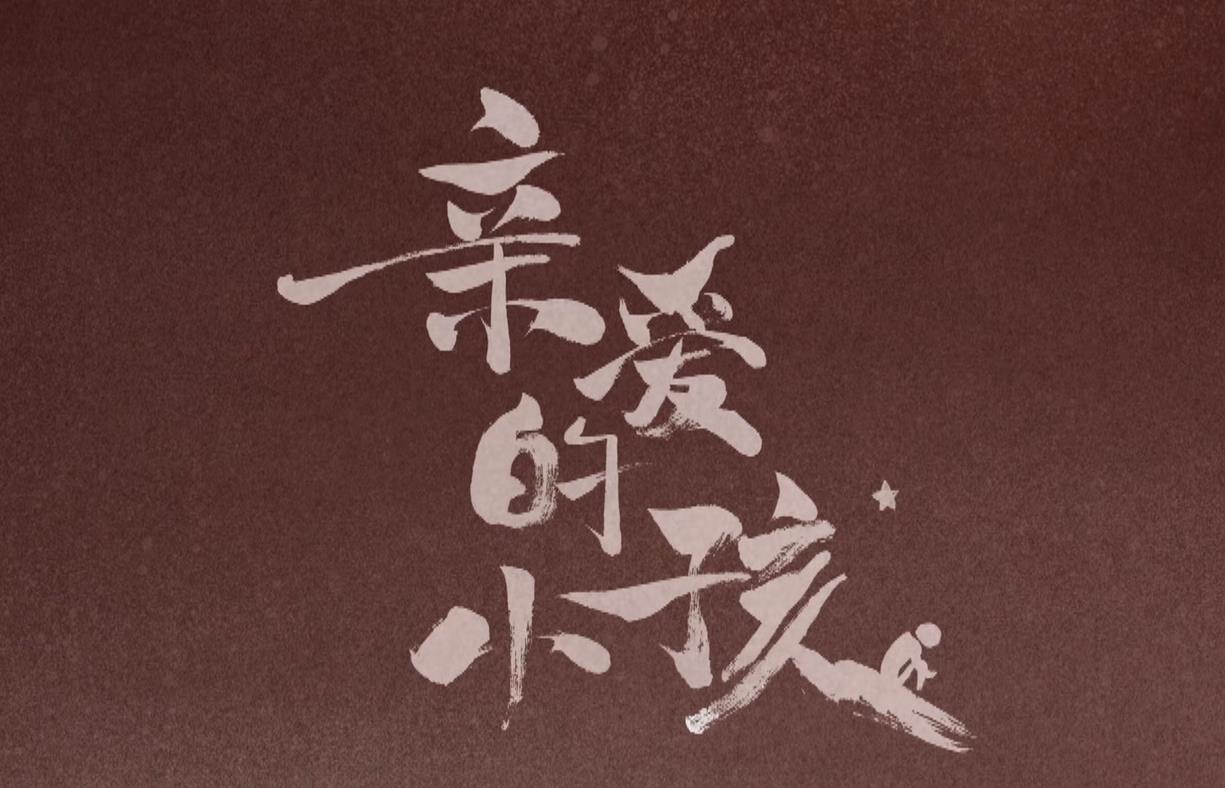 亲爱的小孩